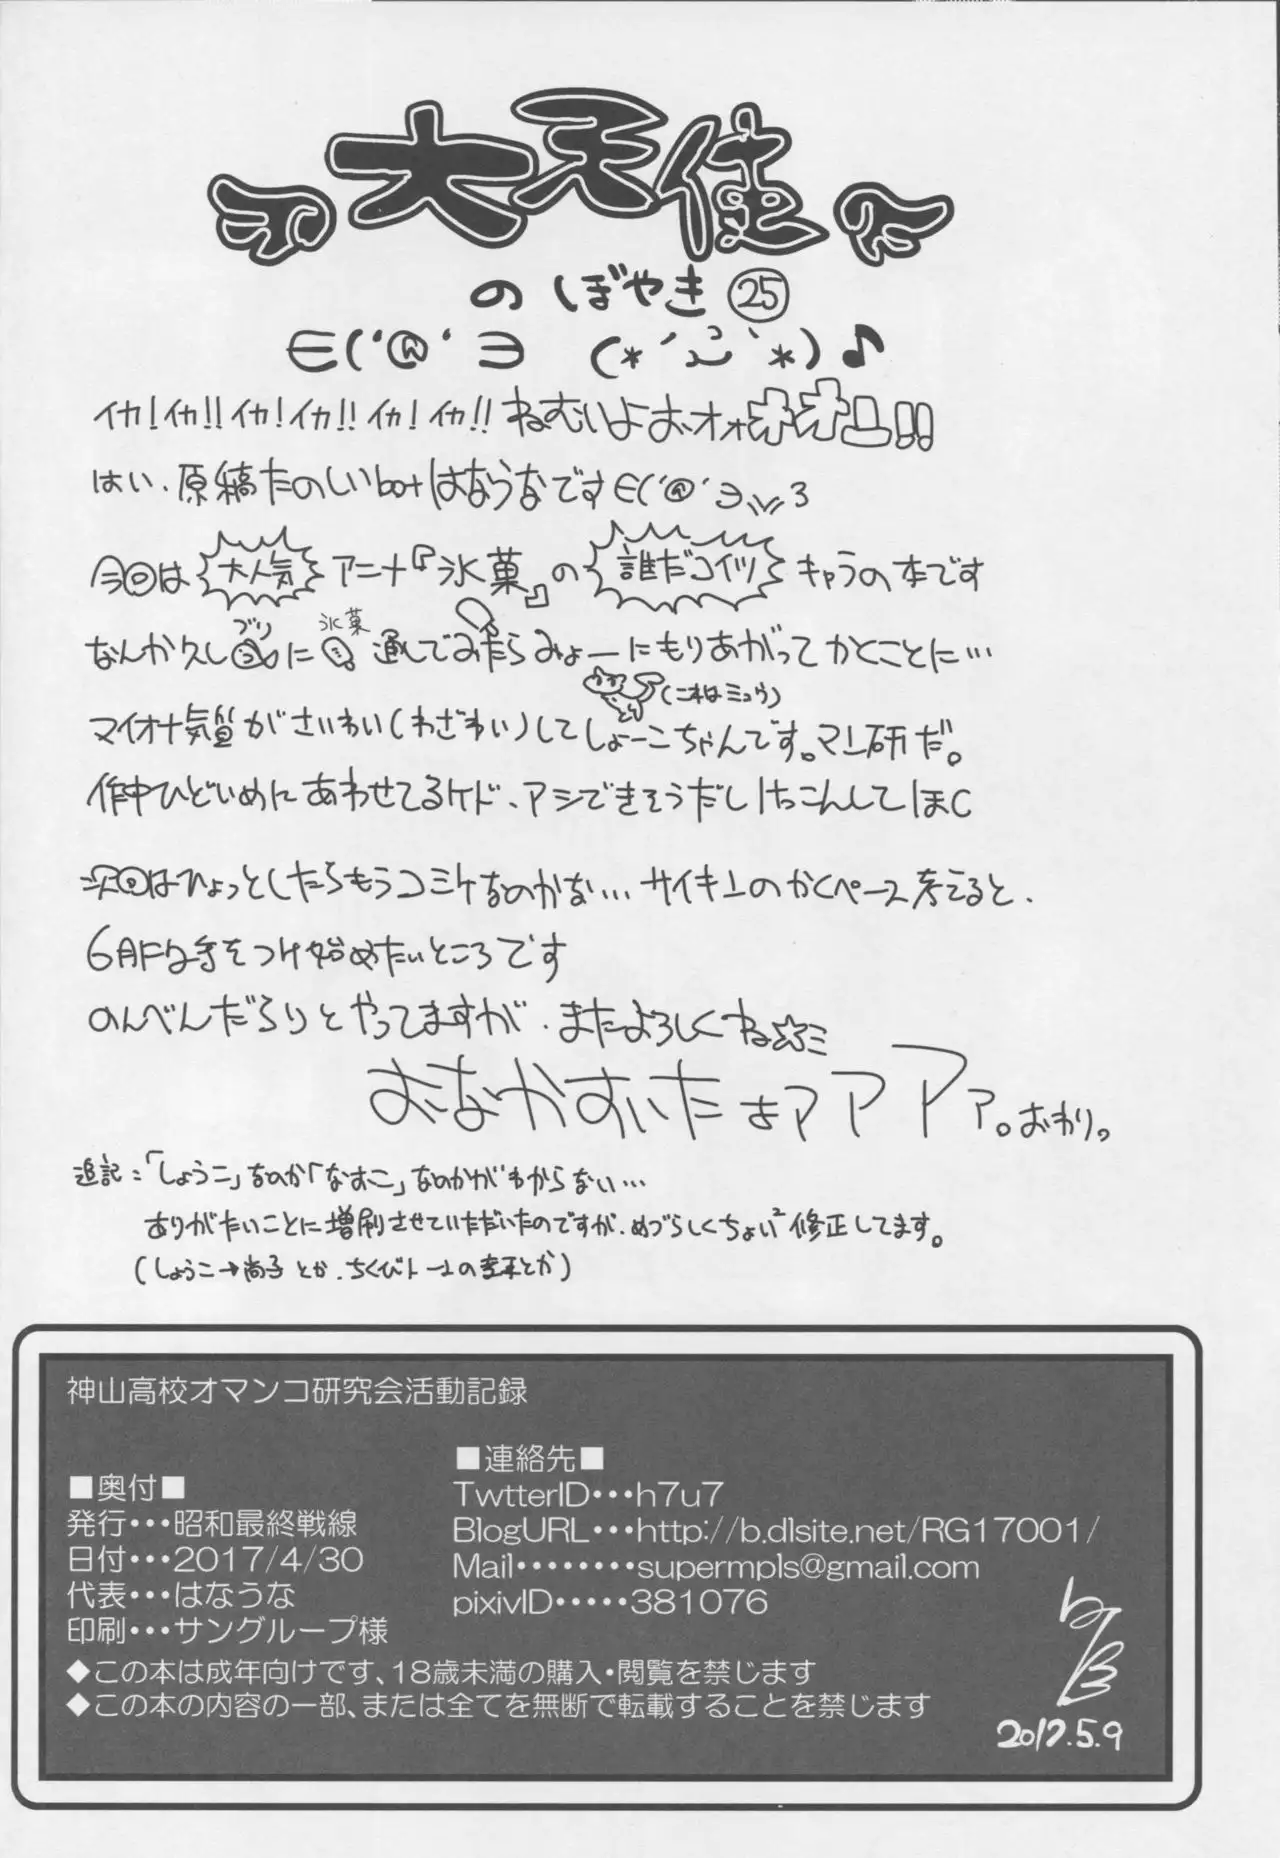 大天使
のぼやき㉕
∈('@'∋ (*´ω`*)♪
イカ!イカ!!イカ!イカ!!イカ!イカ!!ねむいよおーオォオオー!!
はい、原稿たのしいbotはならうなです∈('@'∋ 3
今回は大人気アニナ『氷菓』の誰だコイツキャラの本です
なんか久しぶりに氷菓通しでみたらみょーにもりあがってかくことに…
(これはミュウ)
マイオナ気質がさいわい(わざわい)してしょーこちゃんです。マン研だ。
作中ひどいめにあわせてるケド、アシできそうだしけっこんしてほC
次回はひょっとしたらもうコミケなのかな…サイキンのかくペース考えると、
6月下旬手をつけ始めたいところです
のんべんだらりとやってますが、またよろしくね☆ミ
おなかすいたよアアアァ。おわり。
追記:「しょうこ」なのか「なおこ」なのかがわからない…
ありがたいことに増刷させていただいたのですが、めづらしくちょい²修正してます。
(しょうこ→尚子とか、ちくびトーンの変更とか)
神山高校オマンコ研究会活動記録
■奥付■
発行・・・昭和最終戦線
日付・・・2017/4/30
代表・・・はなうな
印刷・・・サングループ様
■連絡先■
TwtterID・・・h7u7
BlogURL・・・http://b.dlsite.net/RG17001/
Mail・・・・・・・・supermpls@gmail.com
pixivID・・・・・381076
◆この本は成年向けです、18歳未満の購入・閲覧を禁じます
◆この本の内容の一部、または全てを無断で転載することを禁じます
2017.5.9